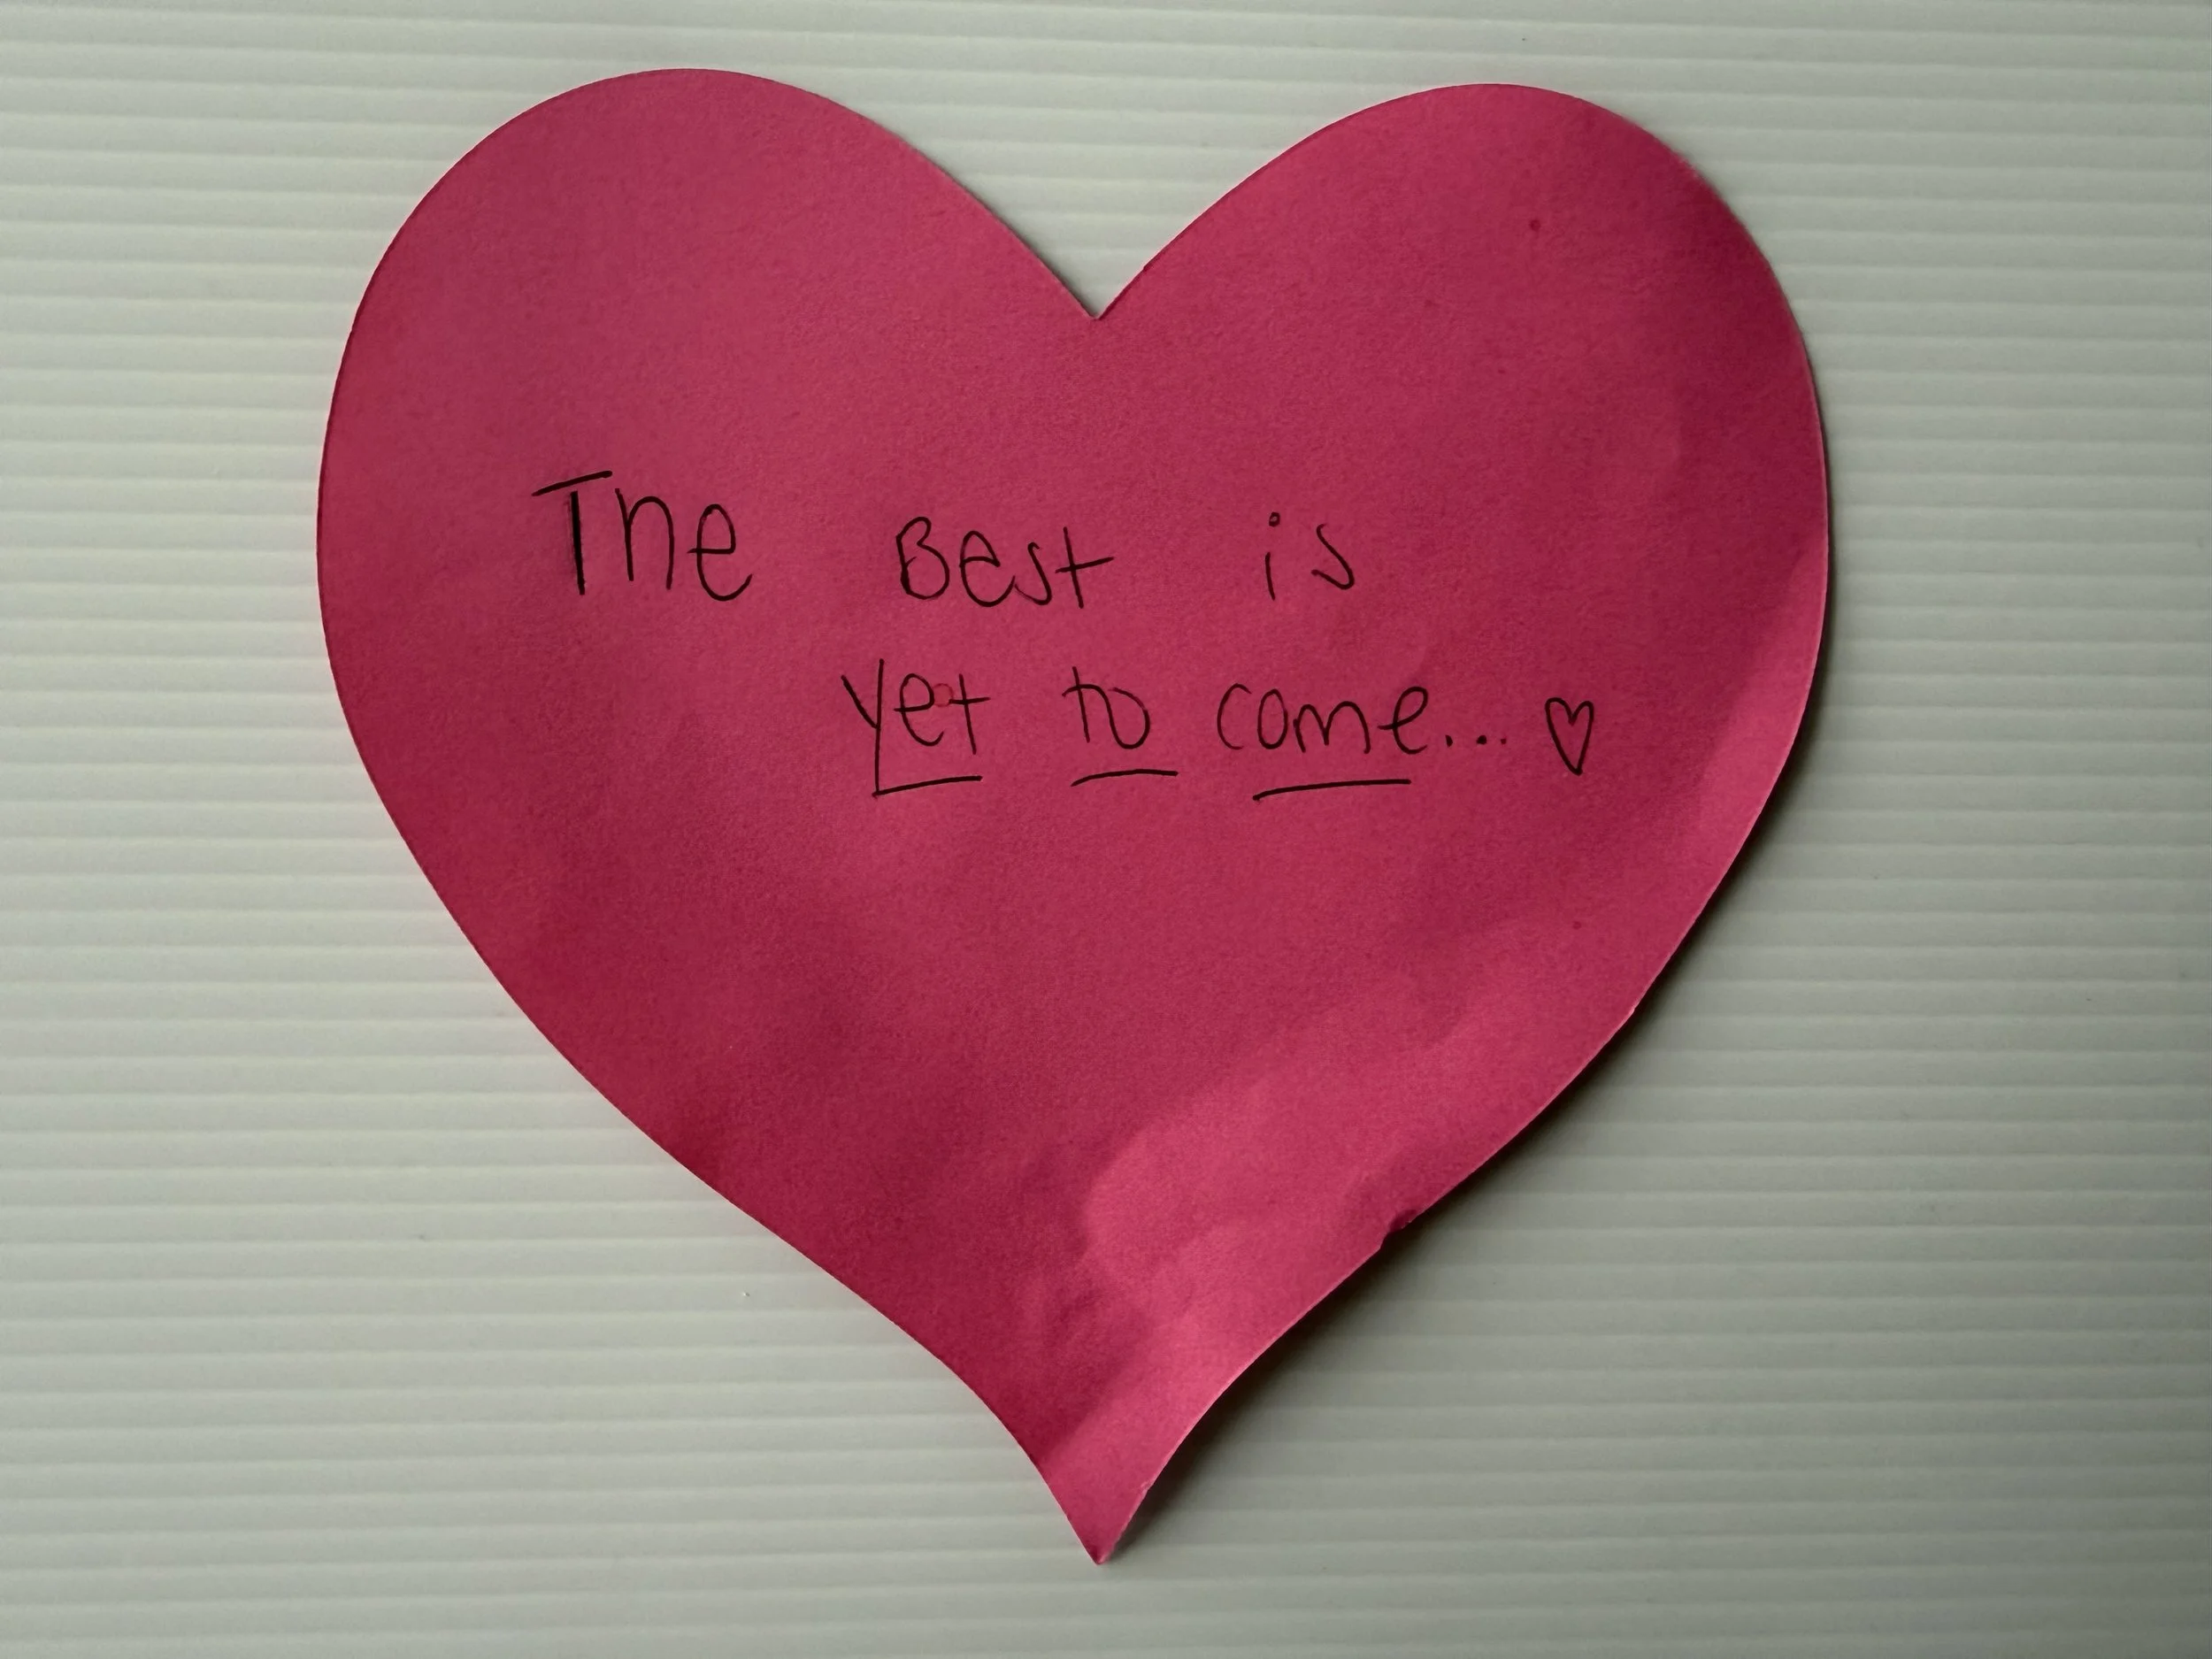 The Best is
yet to come... ♡